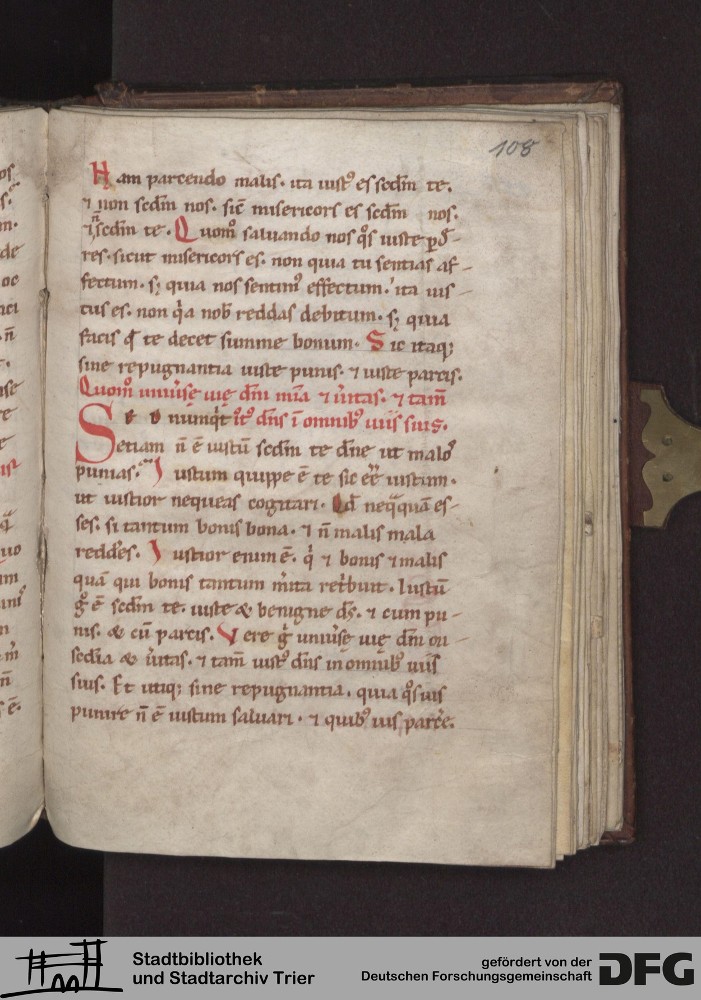 108
Nam parcendo malis. ita iust᷒ es scđm te.
⁊ non scđm nos. sic̄ misericors es scđm nos.
⁊ ñ scđm te. Quom̊ saluando nos q̊s iuste ꝑđ-
res. sicut misericors es. non quia tu sentias af-
fectum. sꝫ quia nos sentim᷒ effectum. ita ius-
tus es. non q̇a nob̄ reddas debitum. sꝫ quia
facis qđ te decet summe bonum. Sic itaqꝫ
sine repugnantia iuste punis. ⁊ iuste parcis.
Quom̊ uniu̇se uię dn̄i mīa ⁊ ůitas. ⁊ tam̄
Sed nunqđ iust᷒ dn̄s ī omnib᷒ uiis suis.
etiam ñ ē iustū scđm te dn̄e ut malos
punias. Iustum quippe ē te sic eē iustum.
ut iustior nequeas cogitari. Qđ neq̄quā es-
ses. si tantum bonis bona. ⁊ ñ malis mala
redderes. Iustior enim ē. q̇ ⁊ bonis ⁊ malis
quā qui bonis tantum m̓ita ret̓buit. Iustū
g̊ ē scđm te. iuste & benigne dꝰ. ⁊ cum pu-
nis. & cū parcis. Vere g̊ uniu̓se uię dn̄i mi
sc̄dia & u̓itas. ⁊ tam̄ iust᷒ dn̄s in omnib᷒ uiis
suis. Et utiqꝫ sine repugnantia. quia q̊s uis
punire ñ ē iustum saluari. ⁊ quib᷒ uis parc̓e.
Stadtbibliothek
und Stadtarchiv Trier
gefördert von der
Deutschen Forschungsgemeinschaft
DFG